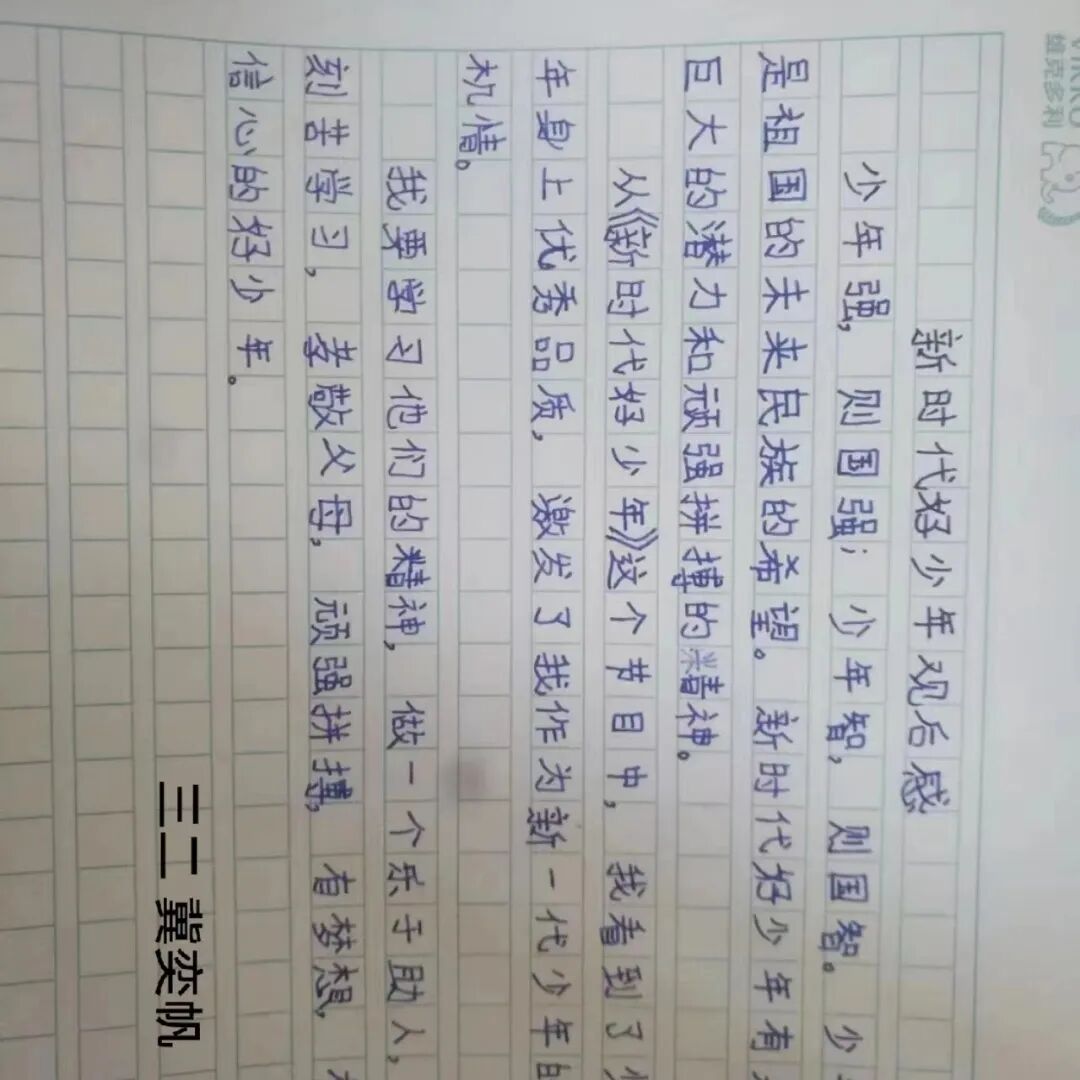 新时代好少年观后感
少年强，则国强；少年智，则国智。少
是祖国的未来民族的希望。新时代好少年有
巨大的潜力和顽强拼搏的精神。
从《新时代好少年》这个节目中，我看到了
年身上优秀品质，激发了我作为新一代少年
机情。
我要学习他们的精神，做一个乐于助人，
刻苦学习，孝敬父母，顽强拼搏，有梦想，
信心的好少年。
三二 冀奕帆
维克多利